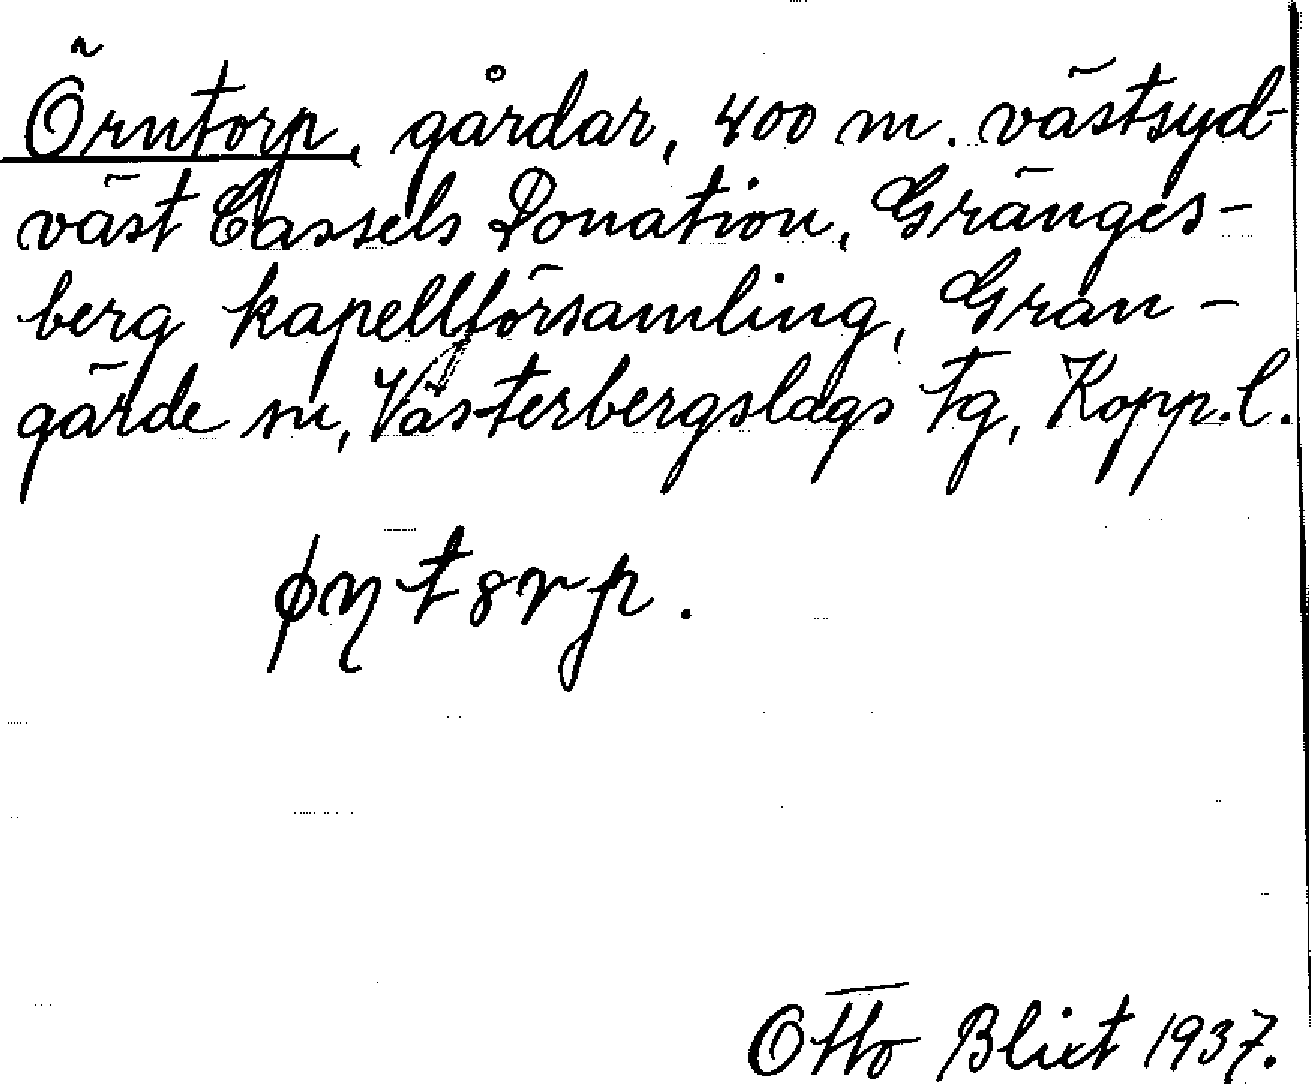 Örntorp, gårdar, 400 m. västsyd-
väst Cassels Donation, Gränges-
berg kapellförsamling, Gran-
gärde sn, Västerbergslags tg, Kopp.l.
ɸŋtȣrp.
Otto Blixt 1937.